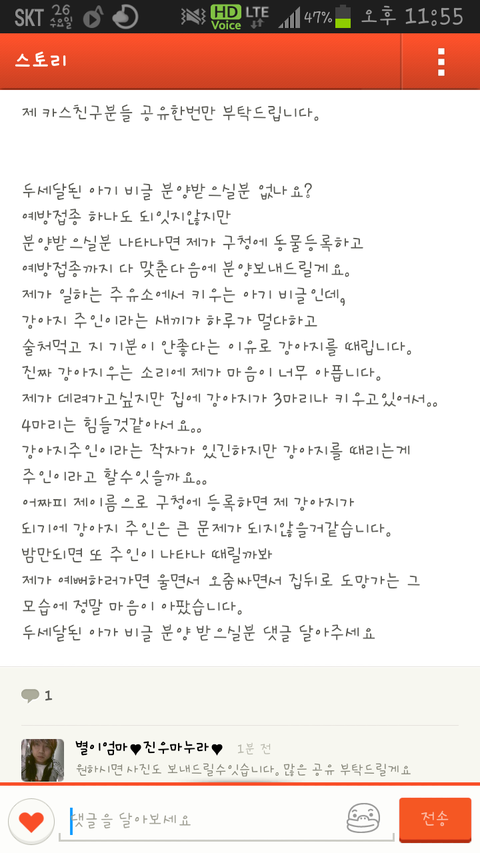 SKT 26 수요일 HD Voice LTE 47% 오후 11:55
스토리
제 카스친구분들 공유한번만 부탁드립니다.
두세달된 아기 비글 분양받으실분 없나요?
예방접종 하나도 되잇지않지만
분양받으실분 나타나면 제가 구청에 동물등록하고
예방접종까지 다 맞춘다음에 분양보내드릴게요.
제가 일하는 주유소에서 키우는 아기 비글인데,
강아지 주인이라는 새끼가 하루가 멀다하고
술처먹고 지 기분이 안좋다는 이유로 강아지를 때립니다.
진짜 강아지우는 소리에 제가 마음이 너무 아픕니다.
제가 데려가고싶지만 집에 강아지가 3마리나 키우고있어서..
4마리는 힘들것같아서요..
강아지주인이라는 작자가 있긴하지만 강아지를 때리는게
주인이라고 할수잇을까요..
어짜피 제이름으로 구청에 등록하면 제 강아지가
되기에 강아지 주인은 큰 문제가 되지않을거같습니다.
밤만되면 또 주인이 나타나 때릴까봐
제가 예뻐하러가면 울면서 오줌싸면서 집뒤로 도망가는 그
모습에 정말 마음이 아팠습니다.
두세달된 아가 비글 분양 받으실분 댓글 달아주세요
1
별이엄마♥진우마누라♥ 1분 전
원하시면 사진도 보내드릴수잇습니다. 많은 공유 부탁드릴게요
댓글을 달아보세요
전송